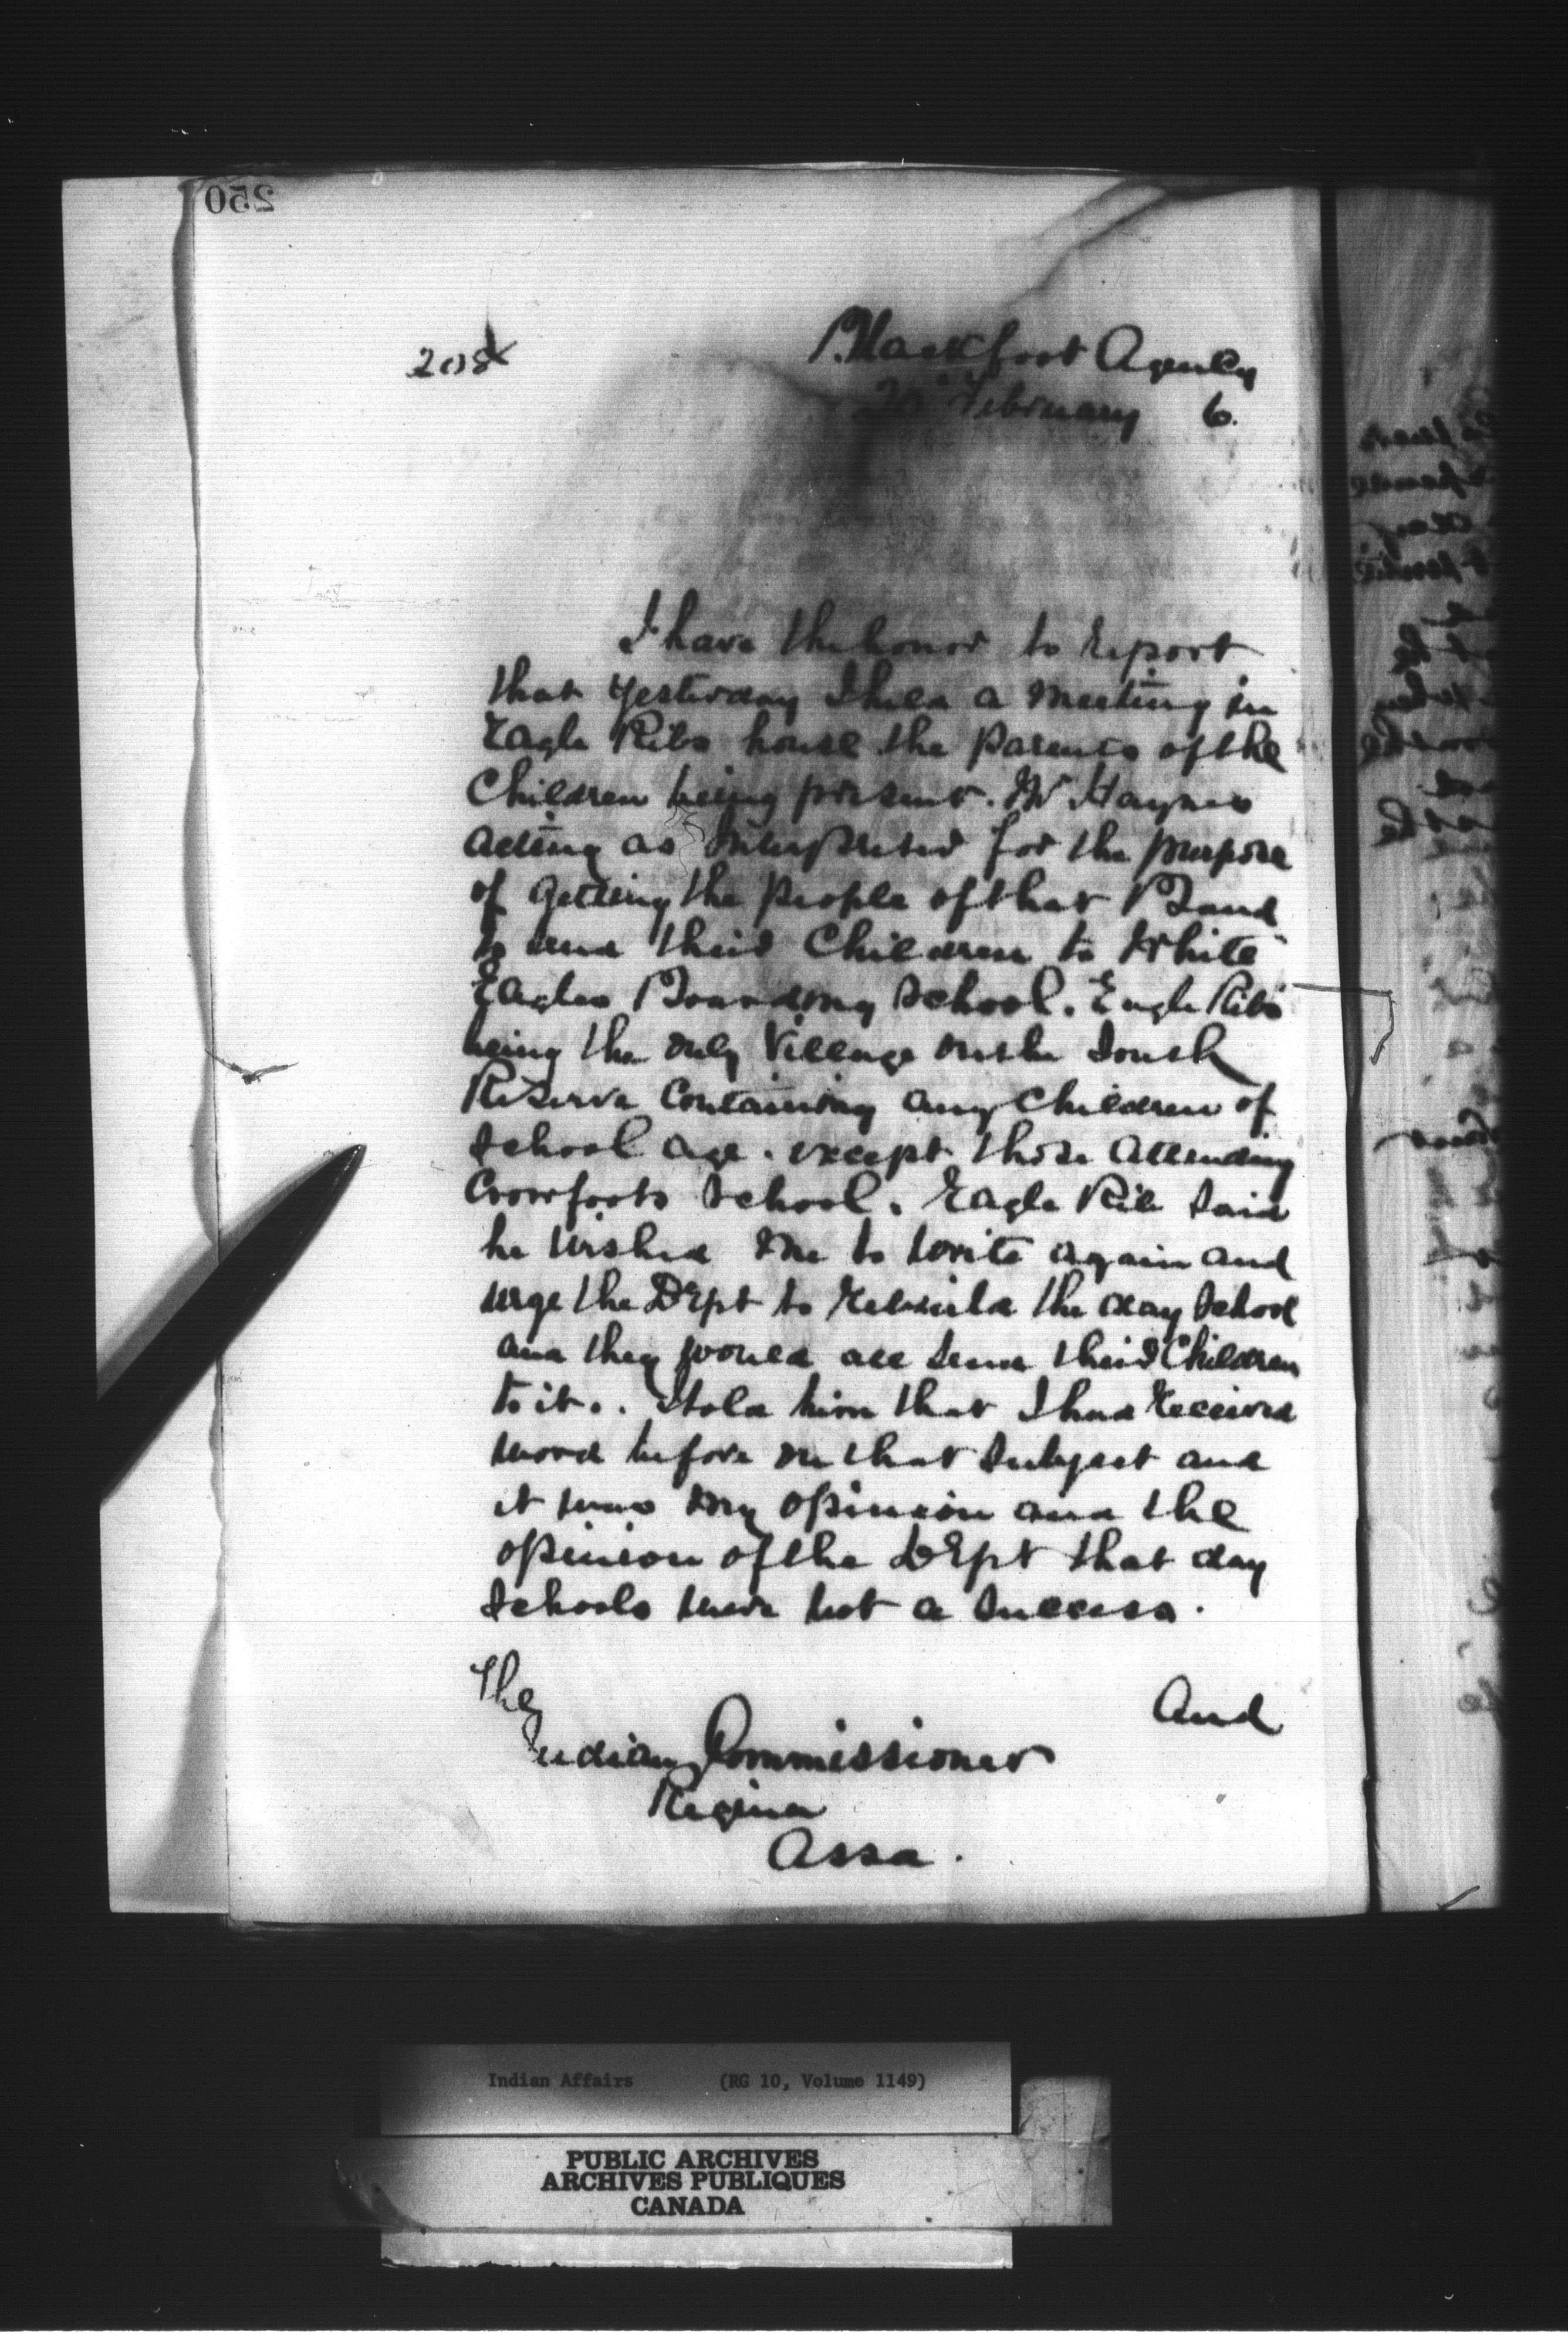 250
208
Blackfoot Agency
20 February 6.
I have the honor to report
that yesterday I held a meeting in
Eagle Ribs house the parents of the
Children being present. Mr Haynes
acting as Interpreter for the purpose
of getting the people of that Band
to send their Children to White
Eagles Boarding School. Eagle Ribs
being the only Village on the South
Reserve containing any children of
School age. except those attending
Crowfoots School. Eagle Rib Said
he wished me to write again and
urge the Dept to rebuild the day School
and they would all send their Children
to it.. I told him that I had received
word before on that Subject and
it was my opinion and the
opinion of the Dept that day
Schools were not a Success.
And
The
Indian Commissioner
Regina
Assa.
Indian Affairs (RG 10, Volume 1149)
PUBLIC ARCHIVES
ARCHIVES PUBLIQUES
CANADA